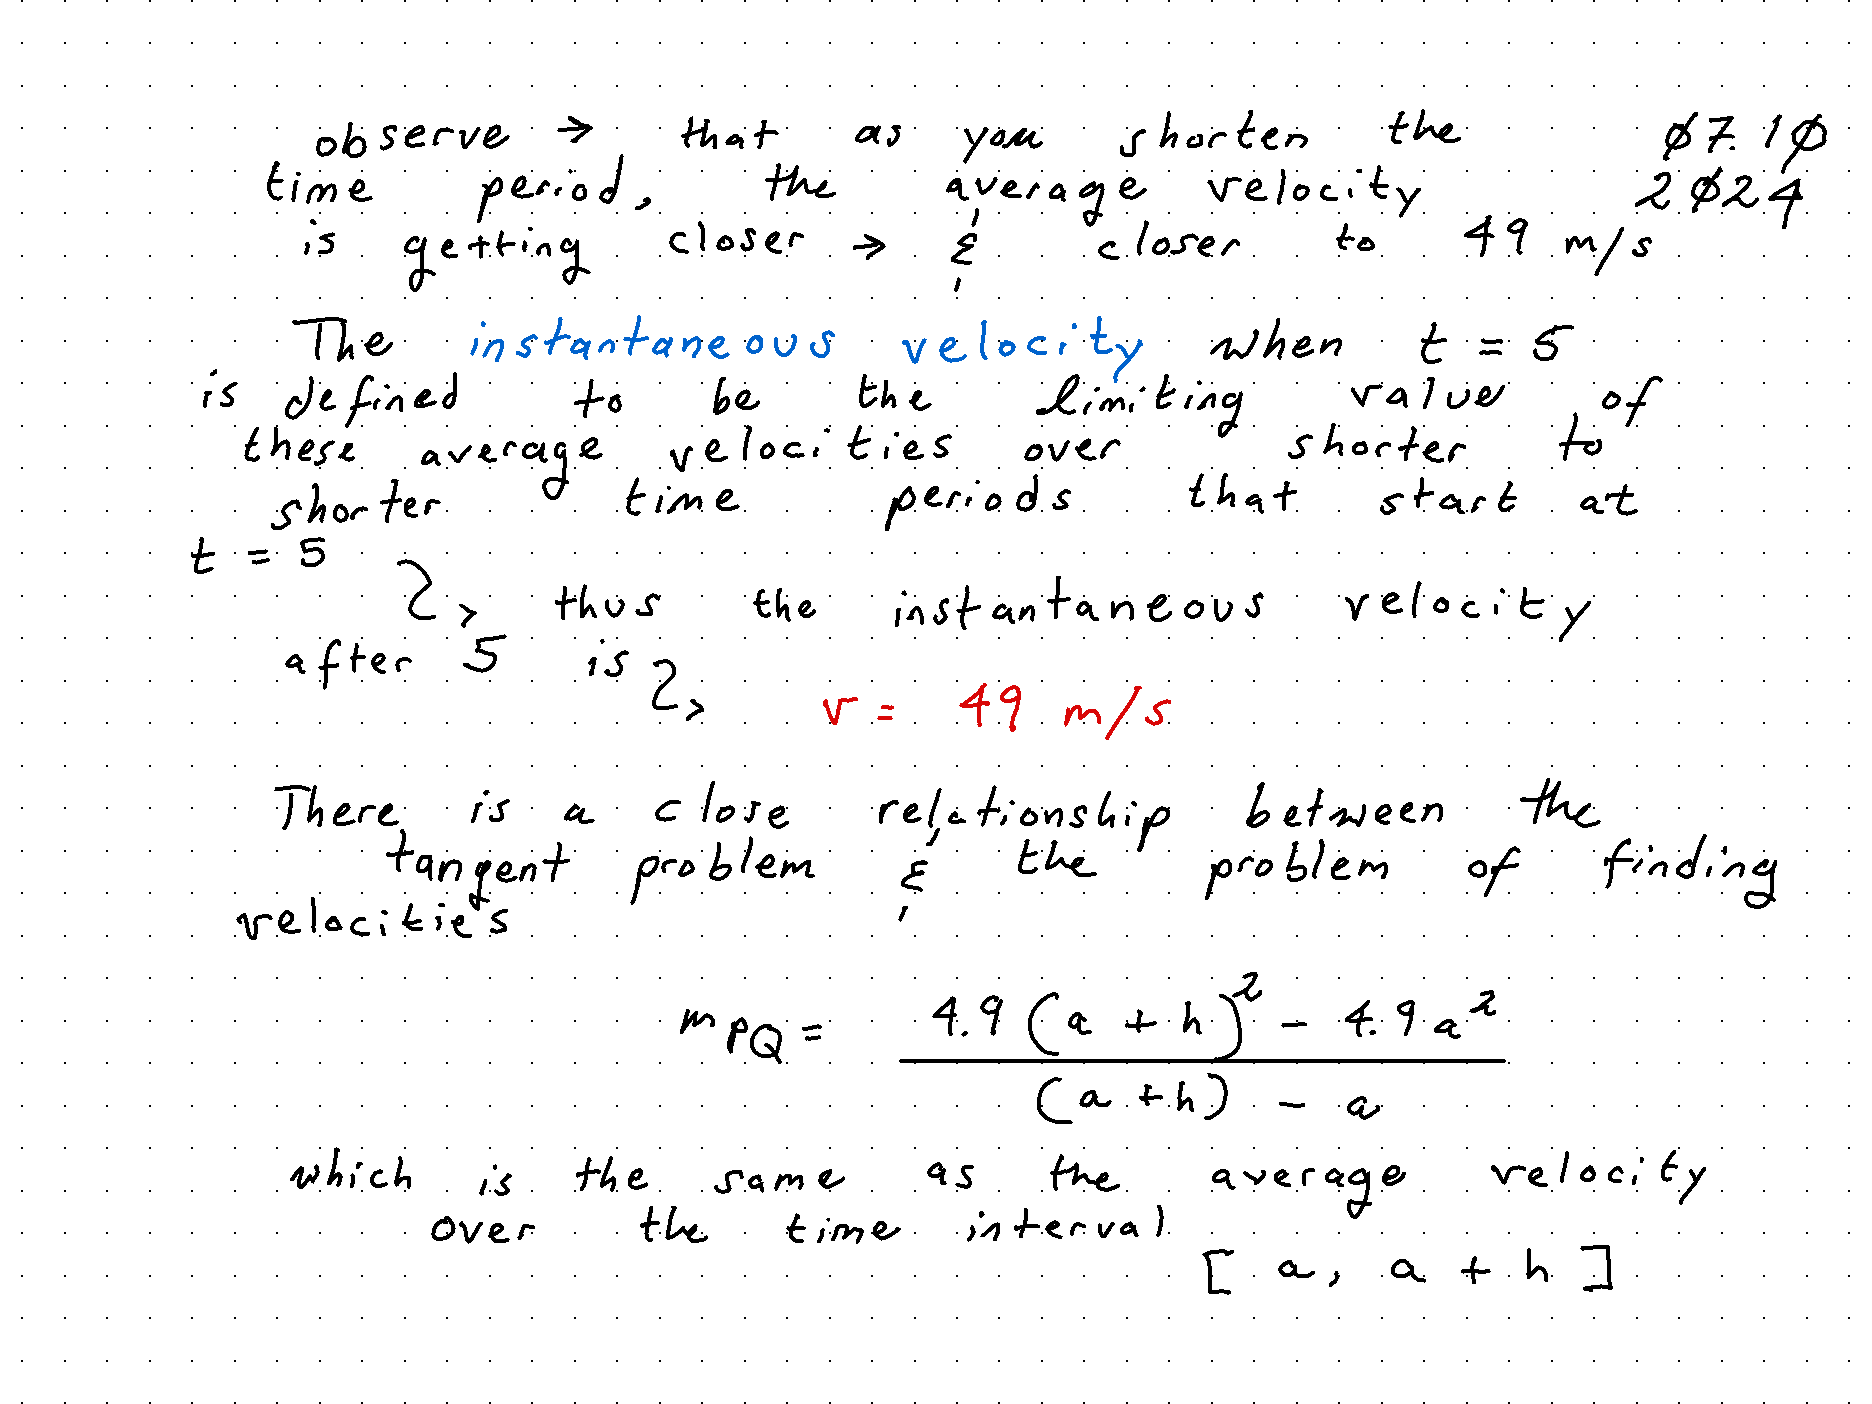 observe → that as you shorten the 07.10
time period, the average velocity 2024
is getting closer → & closer to 49 m/s
The instantaneous velocity when t = 5
is defined to be the limiting value of
these average velocities over shorter to
shorter time periods that start at
t = 5
thus the instantaneous velocity
after 5 is
v = 49 m/s
There is a close relationship between the
tangent problem & the problem of finding
velocities
m PQ = 4.9 (a + h)² - 4.9 a²
(a + h) - a
which is the same as the average velocity
over the time interval
[ a, a + h ]